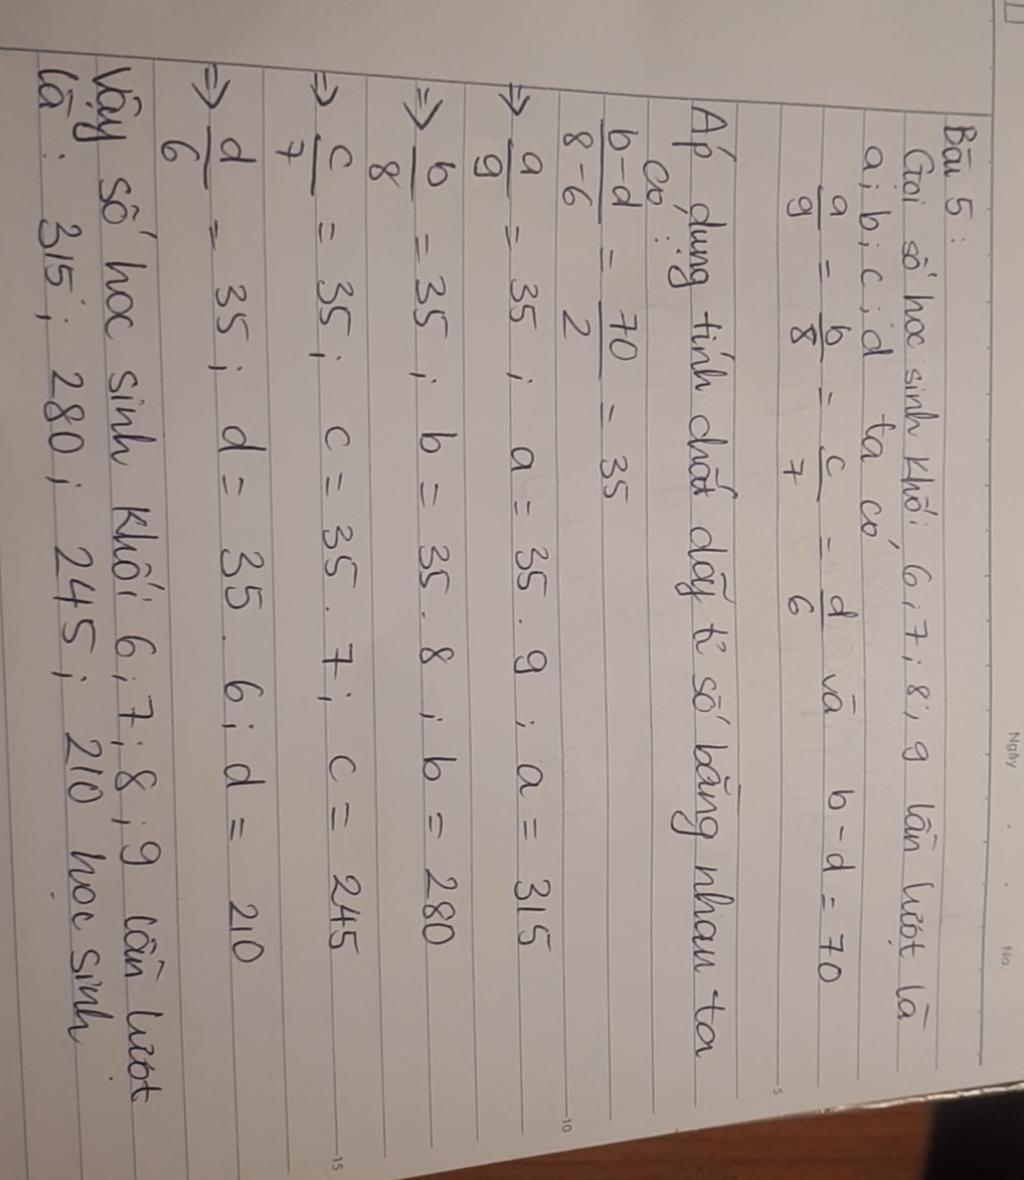 Ngày . . No.
Bài 5:
Gọi số học sinh khối 6; 7; 8; 9 lần lượt là
a; b; c; d ta có
a/9 = b/8 = c/7 = d/6 và b - d = 70
5
Áp dụng tính chất dãy tỉ số bằng nhau ta
có:
b-d/8-6 = 70/2 = 35
10
=> a/9 = 35; a = 35 . 9; a = 315
=> b/8 = 35; b = 35 . 8; b = 280
=> c/7 = 35; c = 35 . 7; c = 245
15
=> d/6 = 35; d = 35 . 6; d = 210
Vậy số học sinh khối 6; 7; 8; 9 lần lượt
là: 315; 280; 245; 210 học sinh